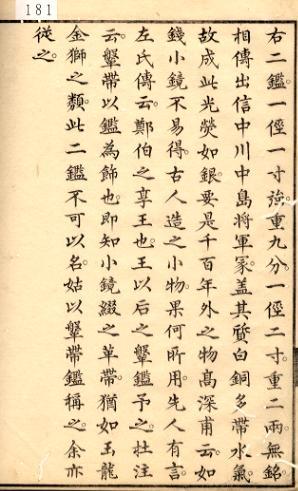 181
右二鑑一徑一寸強重九分一徑二寸重二兩無銘
相傳出信中川中島將軍冢。蓋其質白銅多帶水氣。
故成此光熒如銀。要是千百年外之物。高深甫云。如
錢小鏡不易得。古人造之小物。果何所用。先人有言。
左氏傳云。鄭伯之享王也。王以后之鞶鑑予之。杜注
云。鞶帶以鑑為飾也。即知小鏡綴之革帶。猶如玉龍
金獅之類。此二鑑不可以名。姑以鞶帶鑑稱之。余亦
從之。